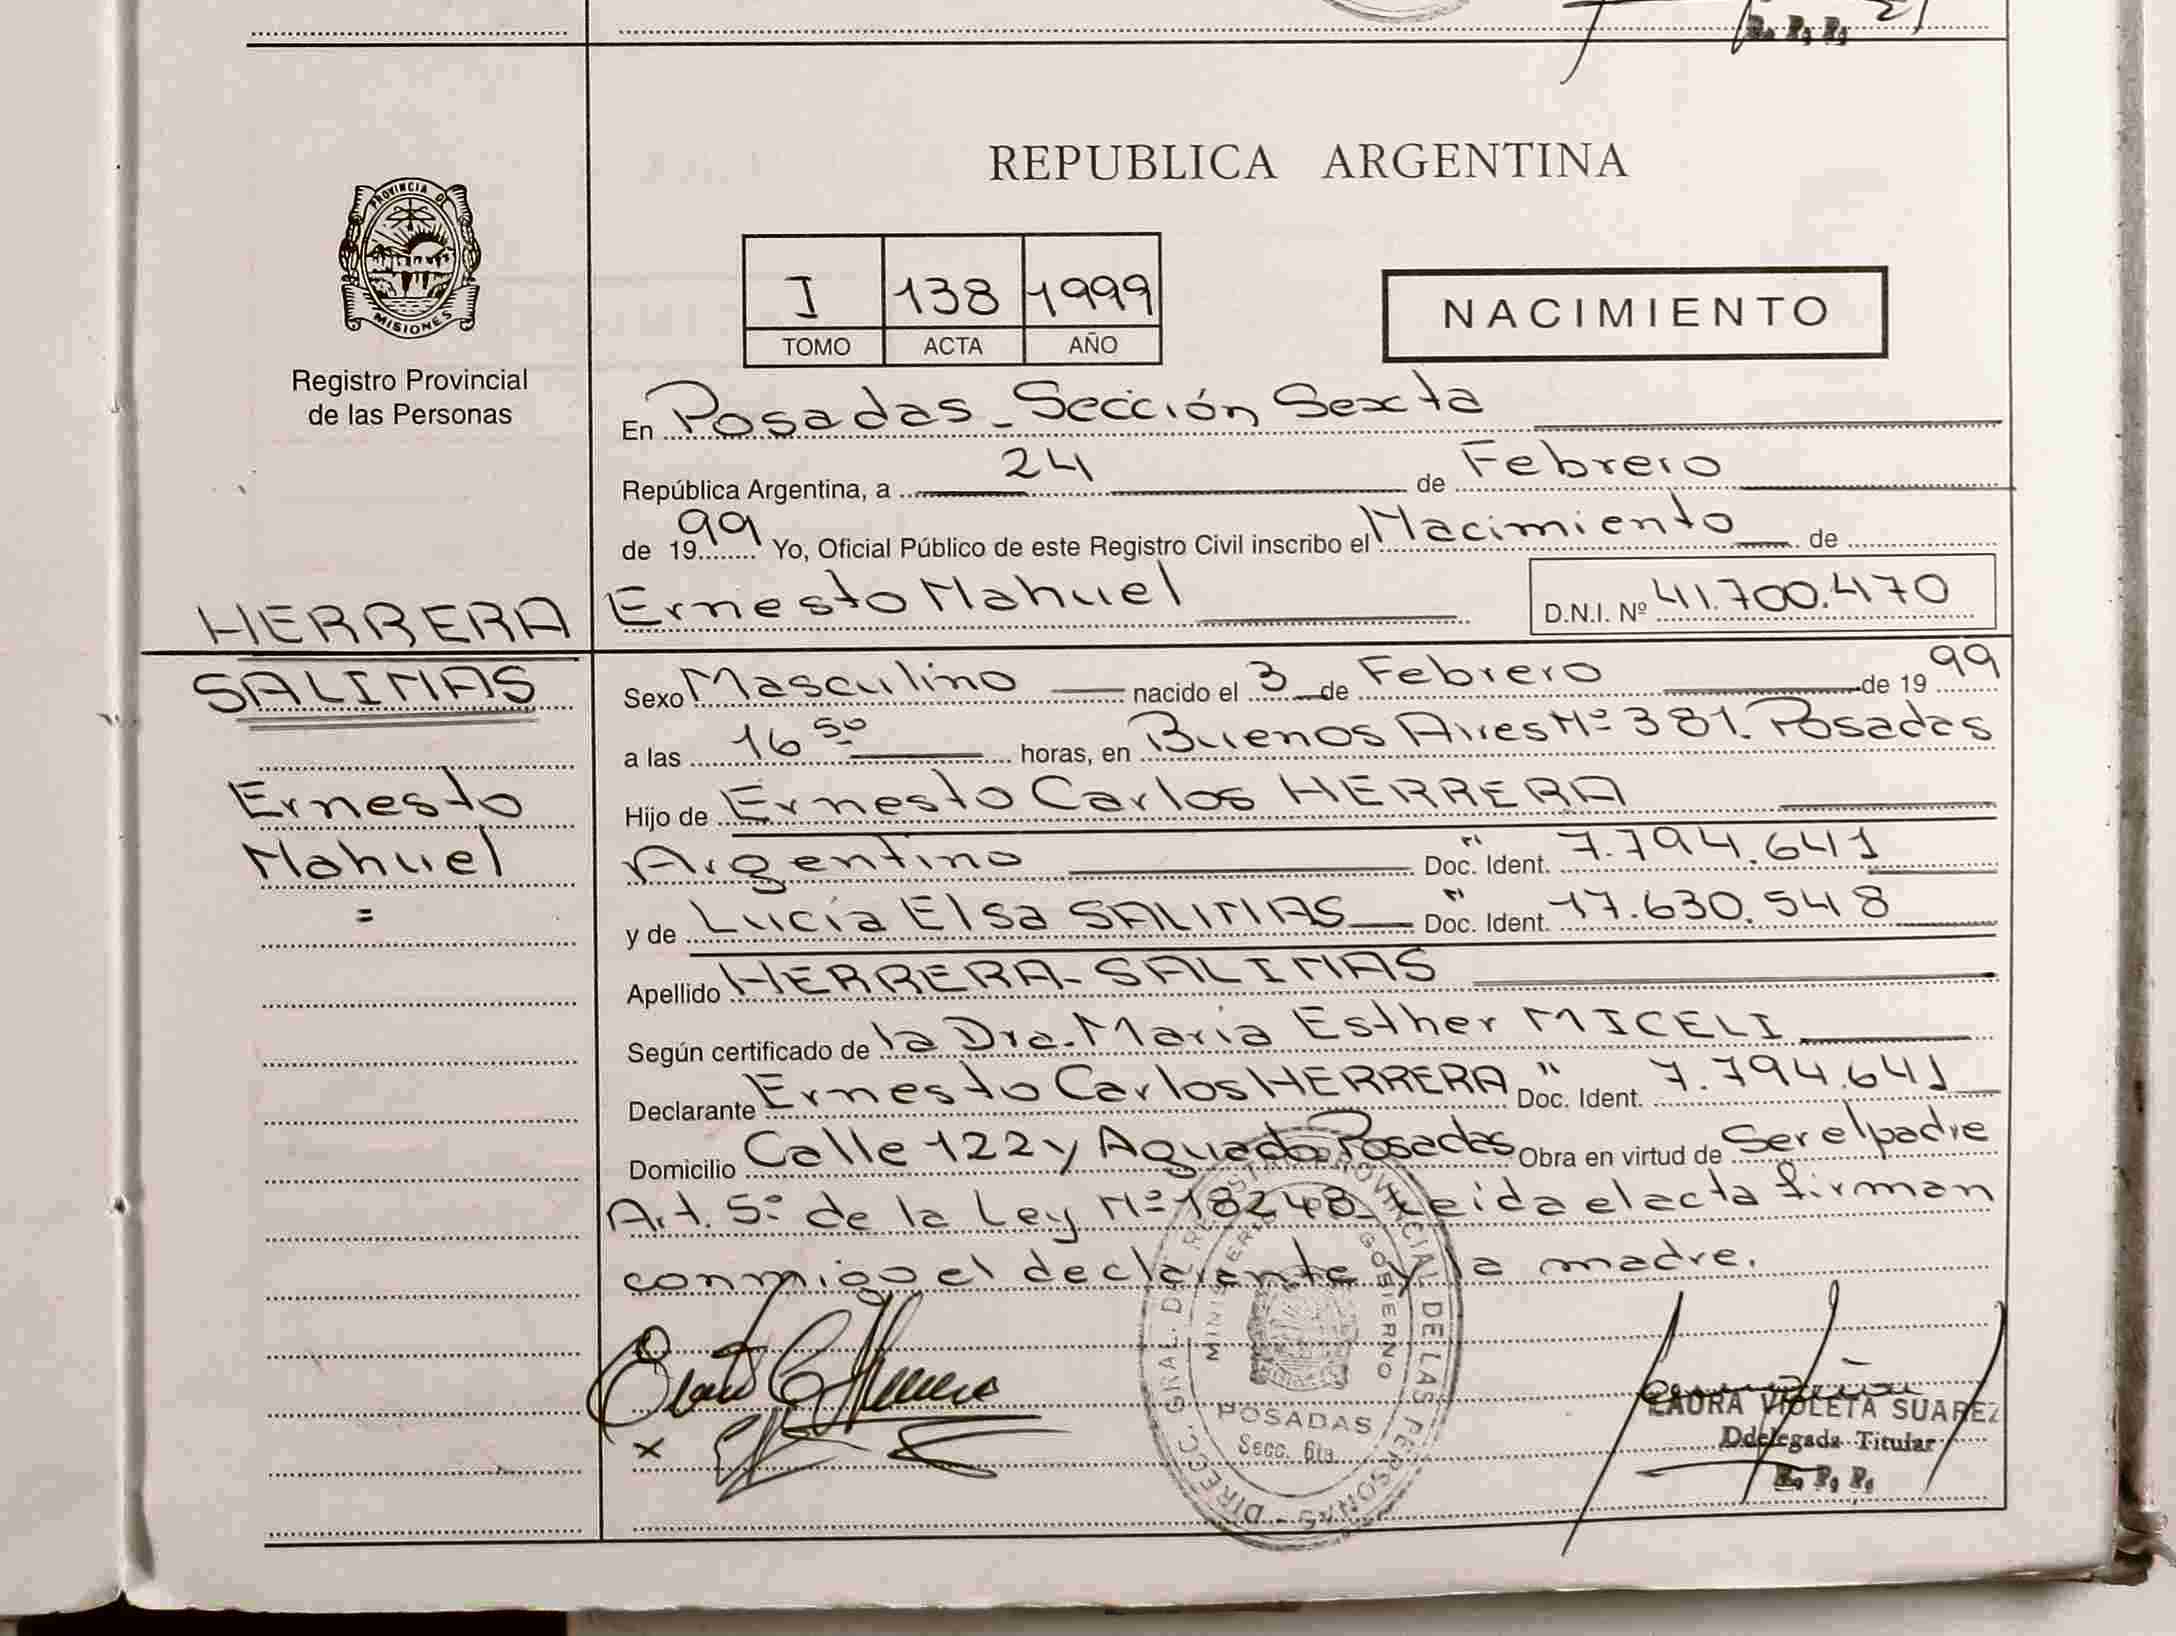 R. P. P.
REPUBLICA ARGENTINA
PROVINCIA DE
MISIONES
Registro Provincial
de las Personas
I 138 1999
TOMO ACTA AÑO
NACIMIENTO
En Posadas - Sección Sexta
República Argentina, a 24 de Febrero
de 1999 Yo, Oficial Público de este Registro Civil inscribo el Nacimiento de
HERRERA Ernesto Nahuel D.N.I. Nº 41.700.470
SALINAS Sexo Masculino nacido el 3 de Febrero de 1999
a las 16 50 horas, en Buenos Aires Nº 381. Posadas
Ernesto Hijo de Ernesto Carlos HERRERA
Nahuel Argentino Doc. Ident. " 7.794.641
= y de Lucía Elsa SALINAS Doc. Ident. " 17.630.548
Apellido HERRERA - SALINAS
Según certificado de la Dra. María Esther MICELI
Declarante Ernesto Carlos HERRERA Doc. Ident. " 7.794.641
Domicilio Calle 122 y Aguado Posadas Obra en virtud de Ser el padre
Art. 5º de la Ley Nº 18248 Leída el acta firman
conmigo el declarante y la madre.
DIRECC. GRAL. DE REGISTRO PROVINCIAL DE LAS PERSONAS
MINISTERIO GOBIERNO
POSADAS
Secc. 6ta.
x
LAURA VIOLETA SUAREZ
Ddelegada Titular
R. P. P.